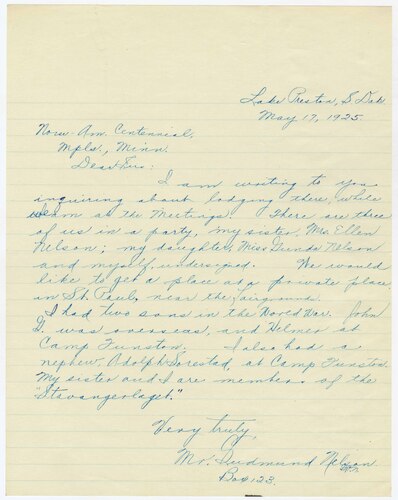 Lake Preston, S. Dak.
May 17, 1925.
Norw-Am. Centennial,
Mpls., Minn.
Dear Sirs:
I am writing to you
inquiring about lodging there while
at the Meetings. There are three
of us in a party, my sister, Mrs. Ellen
Nelson; my daughter, Miss Nelson
and myself, undersigned. We would
like to get a place at a private place
in St. Paul, near the fairgrounds.
I had two sons in the World War. John
G. was overseas, and Helmer at
Camp Funston. I also had a
nephew, Adolph Sorestad, at Camp Funston.
My sister and I are members of the
"Stavangerlaget."
Very truly,
Mr. Gudmund Nelson
Box 123.